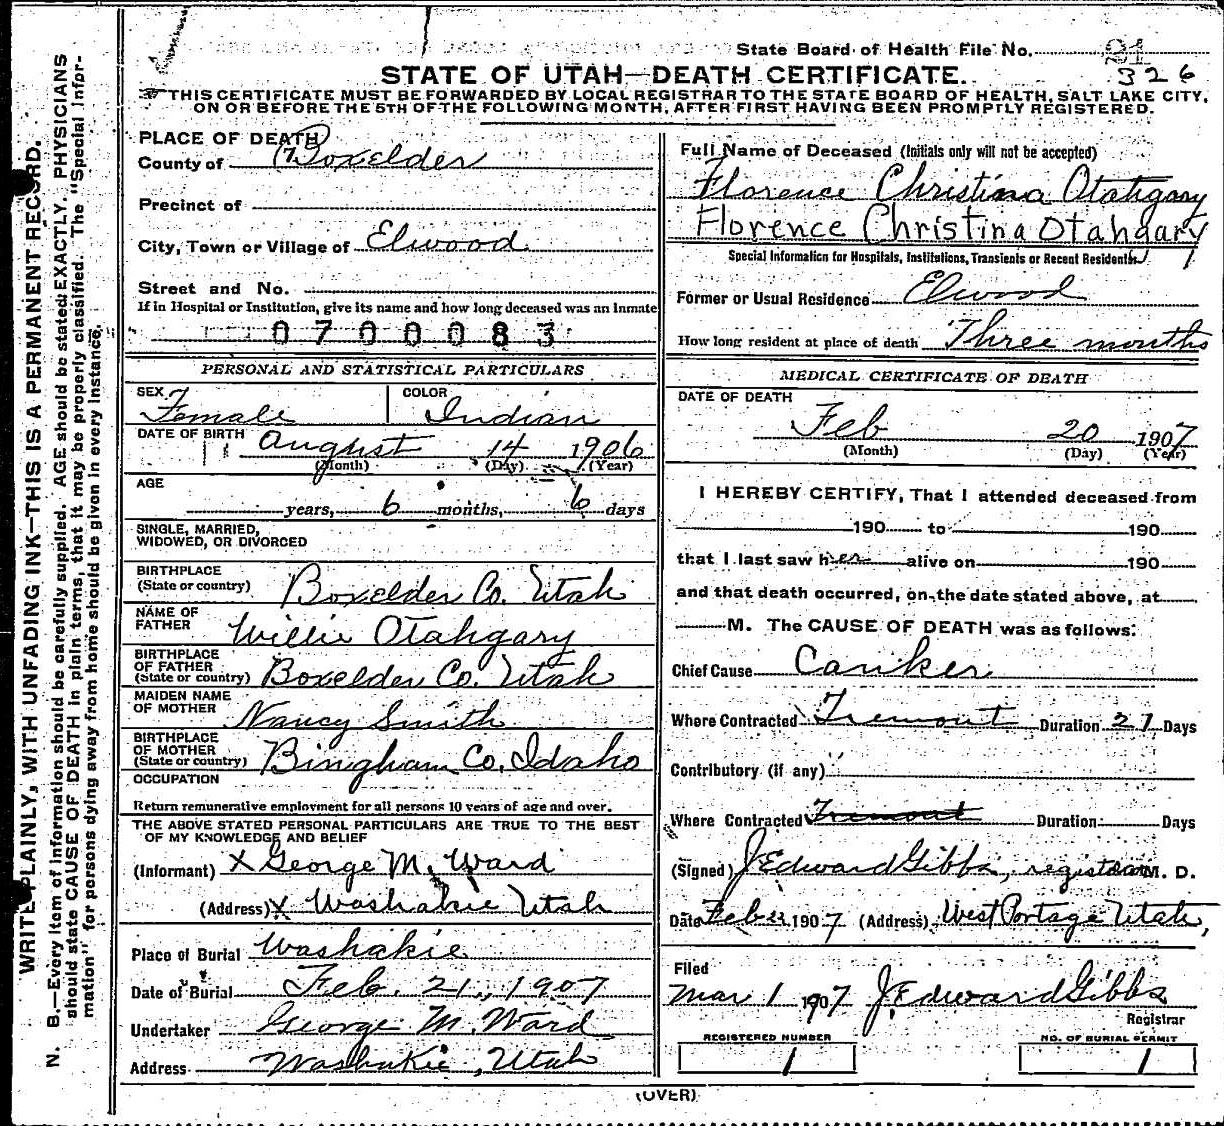 State Board of Health File No. 91
326
STATE OF UTAH—DEATH CERTIFICATE.
THIS CERTIFICATE MUST BE FORWARDED BY LOCAL REGISTRAR TO THE STATE BOARD OF HEALTH, SALT LAKE CITY,
ON OR BEFORE THE 5TH OF THE FOLLOWING MONTH, AFTER FIRST HAVING BEEN PROMPTLY REGISTERED.
WRITE PLAINLY, WITH UNFADING INK—THIS IS A PERMANENT RECORD.
N. B.—Every item of Information should be carefully supplied. AGE should be stated EXACTLY. PHYSICIANS
should state CAUSE OF DEATH in plain terms, that it may be properly classified. The "Special Infor-
mation" for persons dying away from home should be given in every instance.
PLACE OF DEATH
County of Boxelder
Precinct of
City, Town or Village of Elwood
Street and No.
If in Hospital or Institution, give its name and how long deceased was an Inmate
0700083
PERSONAL AND STATISTICAL PARTICULARS
SEX Female COLOR Indian
DATE OF BIRTH August 14 1906
(Month) (Day) (Year)
AGE
years, 6 months, 6 days
SINGLE, MARRIED,
WIDOWED, OR DIVORCED
BIRTHPLACE
(State or country) Boxelder Co. Utah
NAME OF
FATHER Willie Otahgary
BIRTHPLACE
OF FATHER
(State or country) Boxelder Co. Utah
MAIDEN NAME
OF MOTHER Nancy Smith
BIRTHPLACE
OF MOTHER
(State or country) Bingham Co. Idaho
OCCUPATION
Return remunerative employment for all persons 10 years of age and over.
THE ABOVE STATED PERSONAL PARTICULARS ARE TRUE TO THE BEST
OF MY KNOWLEDGE AND BELIEF
(Informant) X George M. Ward
(Address) X Washakie Utah
Place of Burial Washakie
Date of Burial Feb. 21, 1907
Undertaker George M. Ward
Address Washakie, Utah
Full Name of Deceased (Initials only will not be accepted)
Florence Christina Otahgary
Florence Christina Otahgary
Special Information for Hospitals, Institutions, Transients or Recent Residents.
Former or Usual Residence Elwood
How long resident at place of death Three months
MEDICAL CERTIFICATE OF DEATH
DATE OF DEATH
Feb 20 1907
(Month) (Day) (Year)
I HEREBY CERTIFY, That I attended deceased from
190 to 190
that I last saw her alive on 190
and that death occurred, on the date stated above, at
M. The CAUSE OF DEATH was as follows:
Chief Cause Canker
Where Contracted Tremont Duration 27 Days
Contributory (if any)
Where Contracted Tremont Duration Days
(Signed) J Edward Gibbs, registrar M. D.
Date Feb 22 1907 (Address) West Portage Utah,
Filed
Mar 1 1907 J. Edward Gibbs
Registrar
REGISTERED NUMBER
1
NO. OF BURIAL PERMIT
1
(OVER)